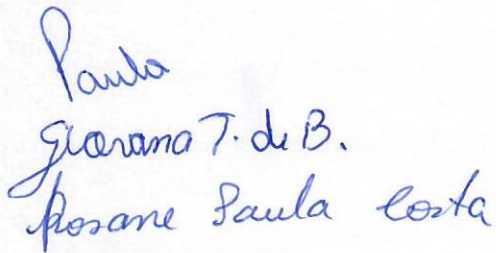 Paula
Giovana T. de B.
Rosane Paula Costa